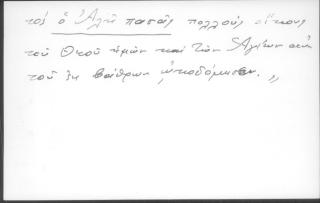 τος ὁ Ἀλῆ πασᾶς πολλοὺς οἴκους
τοῦ Θεοῦ ἡμῶν καὶ τῶν Ἁγίων
τοῦ ἐκ βάθρων ᾠκοδόμησεν. "